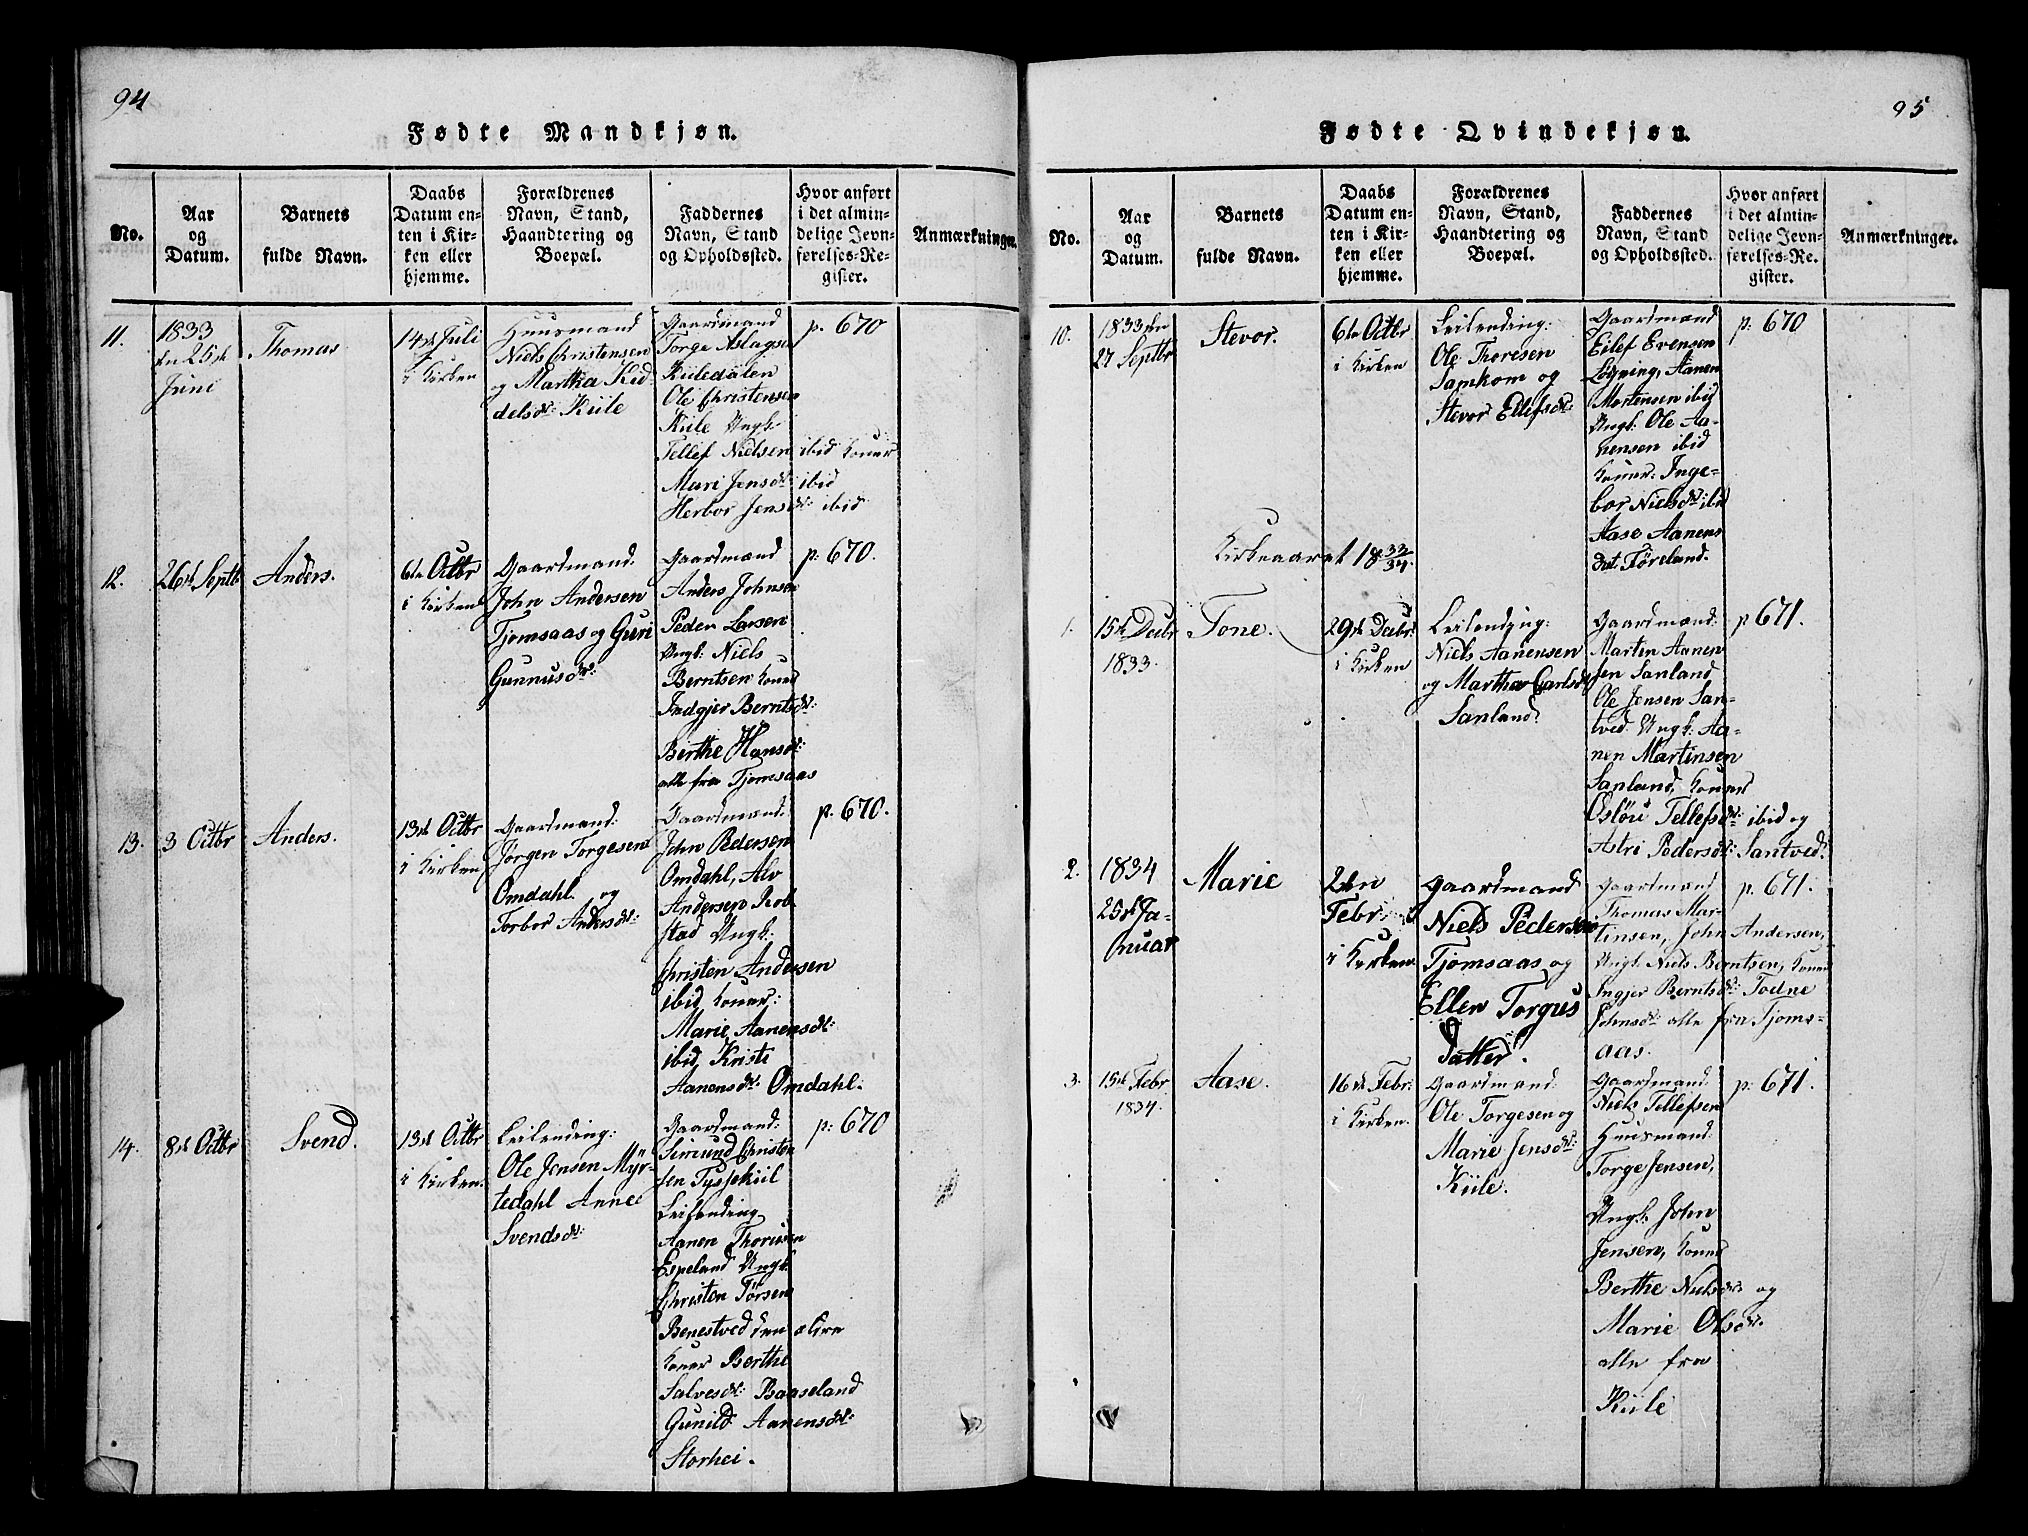 94
Fødte Mandkjøn.
No.
Aar
og
Datum.
Barnets
fulde Navn.
Daabs
Datum en-
ten i Kir-
ken eller
hjemme.
Forældrenes
Navn, Stand,
Haandtering og
Boepæl.
Faddernes
Navn, Stand
og Opholdssted.
Hvor anført
i det almin-
delige Jevn-
førelses-Re-
gister.
Anmærkninger.
11.
1833
den 25de
Juni
Thomas
14de Juli
i Kirken
Huusmand
Niels Christensen
og Martha Kid
delsdr: Kiile
Gaardmænd
Torge Aslagsen
Kiiledalen
Ole Christensen
Kiile Ungk:
Tellef Nielsen ibid Koner
Mari Jensdr: ibid
Herbor Jensdr: ibid
p. 670
12.
26de Septbr
Anders.
6te Octbr
i Kirken
Gaardmand.
John Andersen
Tjomsaas og Guri
Gunnusdr:
Gaardmænd
Anders Johnsen
Peder Larsen
Ungk: Niels
Berntsen Koner
Indgjer Berntsdr:
Berthe Hansdr:
alle fra Tjomsaas
p: 670.
13.
3 Octbr
Anders.
13de Octbr
i Kirken
Gaardmand:
Jørgen Torgesen
Omdahl og
Torbor Andersdr:
Gaardmænd:
John Pedersen
Omdahl, Alv
Andersen Rob-
stad Ungk:
Christen Andersen
ibid, Koner:
Marie Aanensdr:
ibid, Kriste
Aanensdr: Omdahl.
p. 670.
14.
8de Octbr
Svend.
13de Octbr
i Kirken.
Leilending:
Ole Jensen Myr-
tedahl Anne
Svendsdr:
Gaardmand:
Simund Christen
sen Tyssekiil
Leilending
Aanen Thorisen
Espeland Ungk:
Christen Torsen
Benestved den ældre
Koner Berthe
Salvesdr: Baaseland
Gunild Aanensdr:
Storhei.
p: 670
95
Fødte Qvindekjøn.
No.
Aar
og
Datum.
Barnets
fulde Navn.
Daabs
Datum en-
ten i Kir-
ken eller
hjemme.
Forældrenes
Navn, Stand,
Haandtering og
Boepæl.
Faddernes
Navn, Stand
og Opholdssted.
Hvor anført
i det almin-
delige Jevn-
førelses-Re-
gister.
Anmærkninger.
10.
1833 den
27 Septbr
Stevor.
6te Octbr
i Kirken
Leilending:
Ole Thoresen
Samkom og
Stevor Ellefsdr:
Gaardmænd
Eilef Evensen
Løgning, Aanen
Mortensen ibid
Ungk: Ole Aa-
nensen ibid
Koner: Inge-
bor Nielsdr: ibid
Aase Aanens
dat. Føreland.
p. 670
Kirkeaaret 18 33/34.
1.
15de Decbr
1833.
Tone.
29de Decbr:
i Kirken
Leilending:
Niels Aanensen
og Martha Carlsdr
Sanland
Gaardmænd:
Marten Aanen
sen Sanland
Ole Jensen San-
tved Ungk: Aa-
nen Martinsen
Sanland, Koner
Osløu Tellefsdr: ibid og
Astri Pedersdr: Santved.
p 671.
2.
1834
25de Ja-
nuar
Marie
2den
Febr:
i Kirken
Gaardmand
Niels Pedersen
Tjomsaas og
Ellen Torgus
Datter.
Gaardmænd
Thomas Mar-
tinsen, John Andersen,
Ungk: Niels Berntsen, Koner
Ingjer Berntsdr: Todne
Johnsdr: alle fra Tjoms-
aas.
p. 671.
3.
15de Febr
1834.
Aase.
16de Febr:
i Kirken.
Gaardmand:
Ole Torgesen og
Marie Jensdr:
Kiile.
Gaardmand:
Niels Tellefsen
Huusmand:
Torge Jensen,
Ungk: John
Jensen, Koner
Berthe Nielsdr: og
Marie Olsdr:
alle fra
Kiile
p: 671.